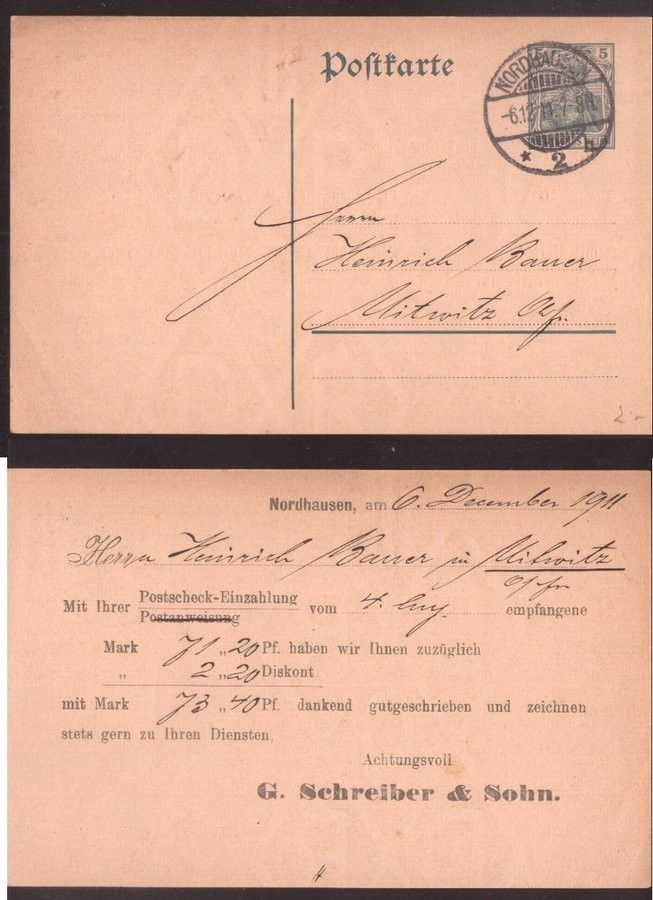 Postkarte
5
NORDHAUSEN
-6.12.11.7-8N.
* 2 h
Herrn
Heinrich Bauer
Mitwitz Ofr.
2.-
Nordhausen, am 6. December 1911
Herrn Heinrich Bauer in Mitwitz
o/fr.
Mit Ihrer Postscheck-Einzahlung vom 4. empfangene
Postanweisung
Mark 71 „ 20 Pf. haben wir Ihnen zuzüglich
„ 2 „ 20 Diskont
mit Mark 73 „ 40 Pf. dankend gutgeschrieben und zeichnen
stets gern zu Ihren Diensten.
Achtungsvoll
G. Schreiber & Sohn.